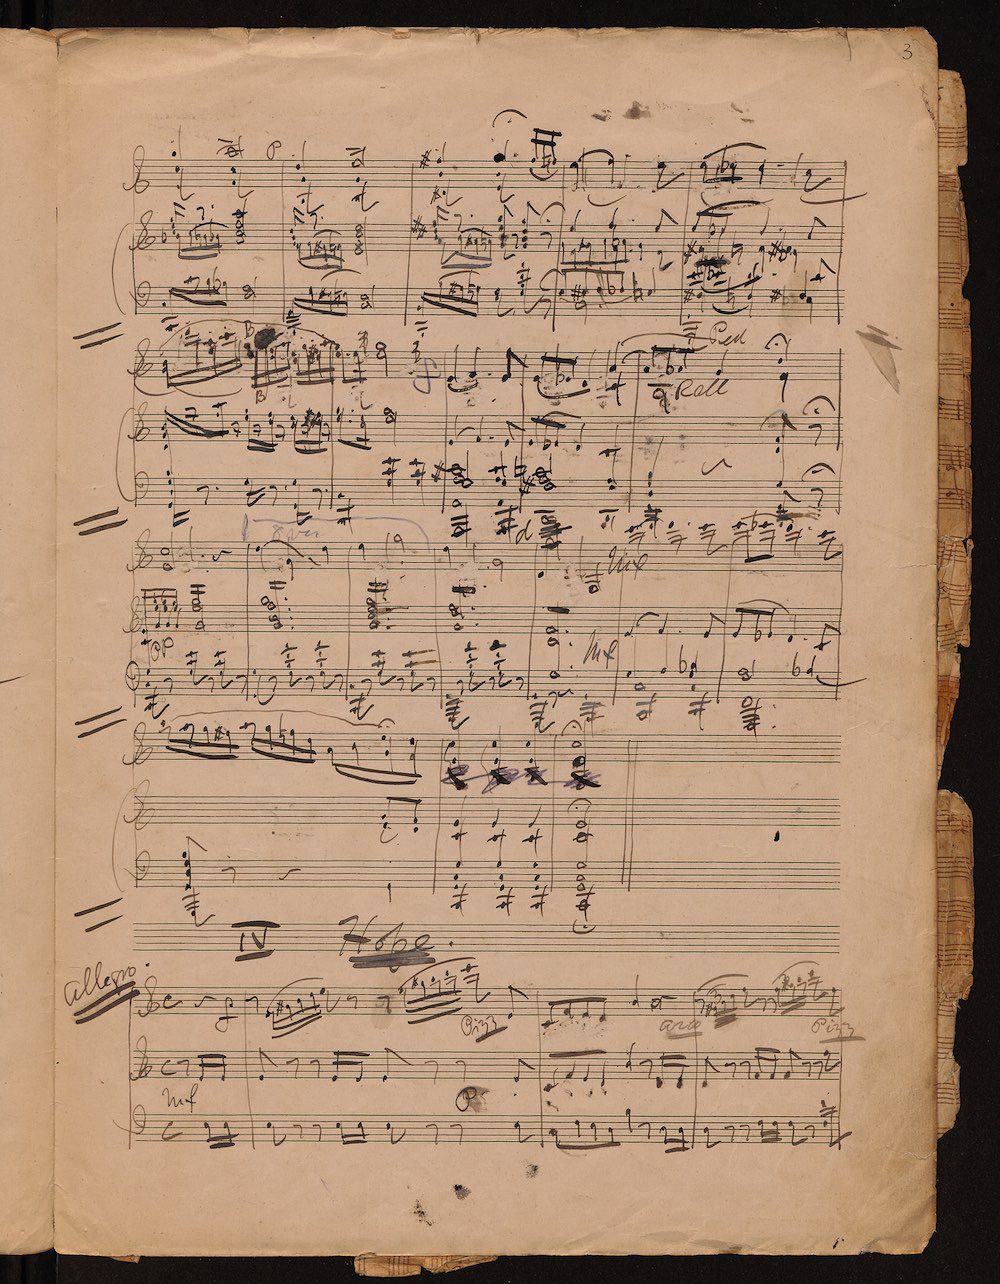 3
P
B
Ped
B
Rall
8va
mf
PP
mf
IV Hope.
Allegro.
Pizz
arco
Pizz
mf
P